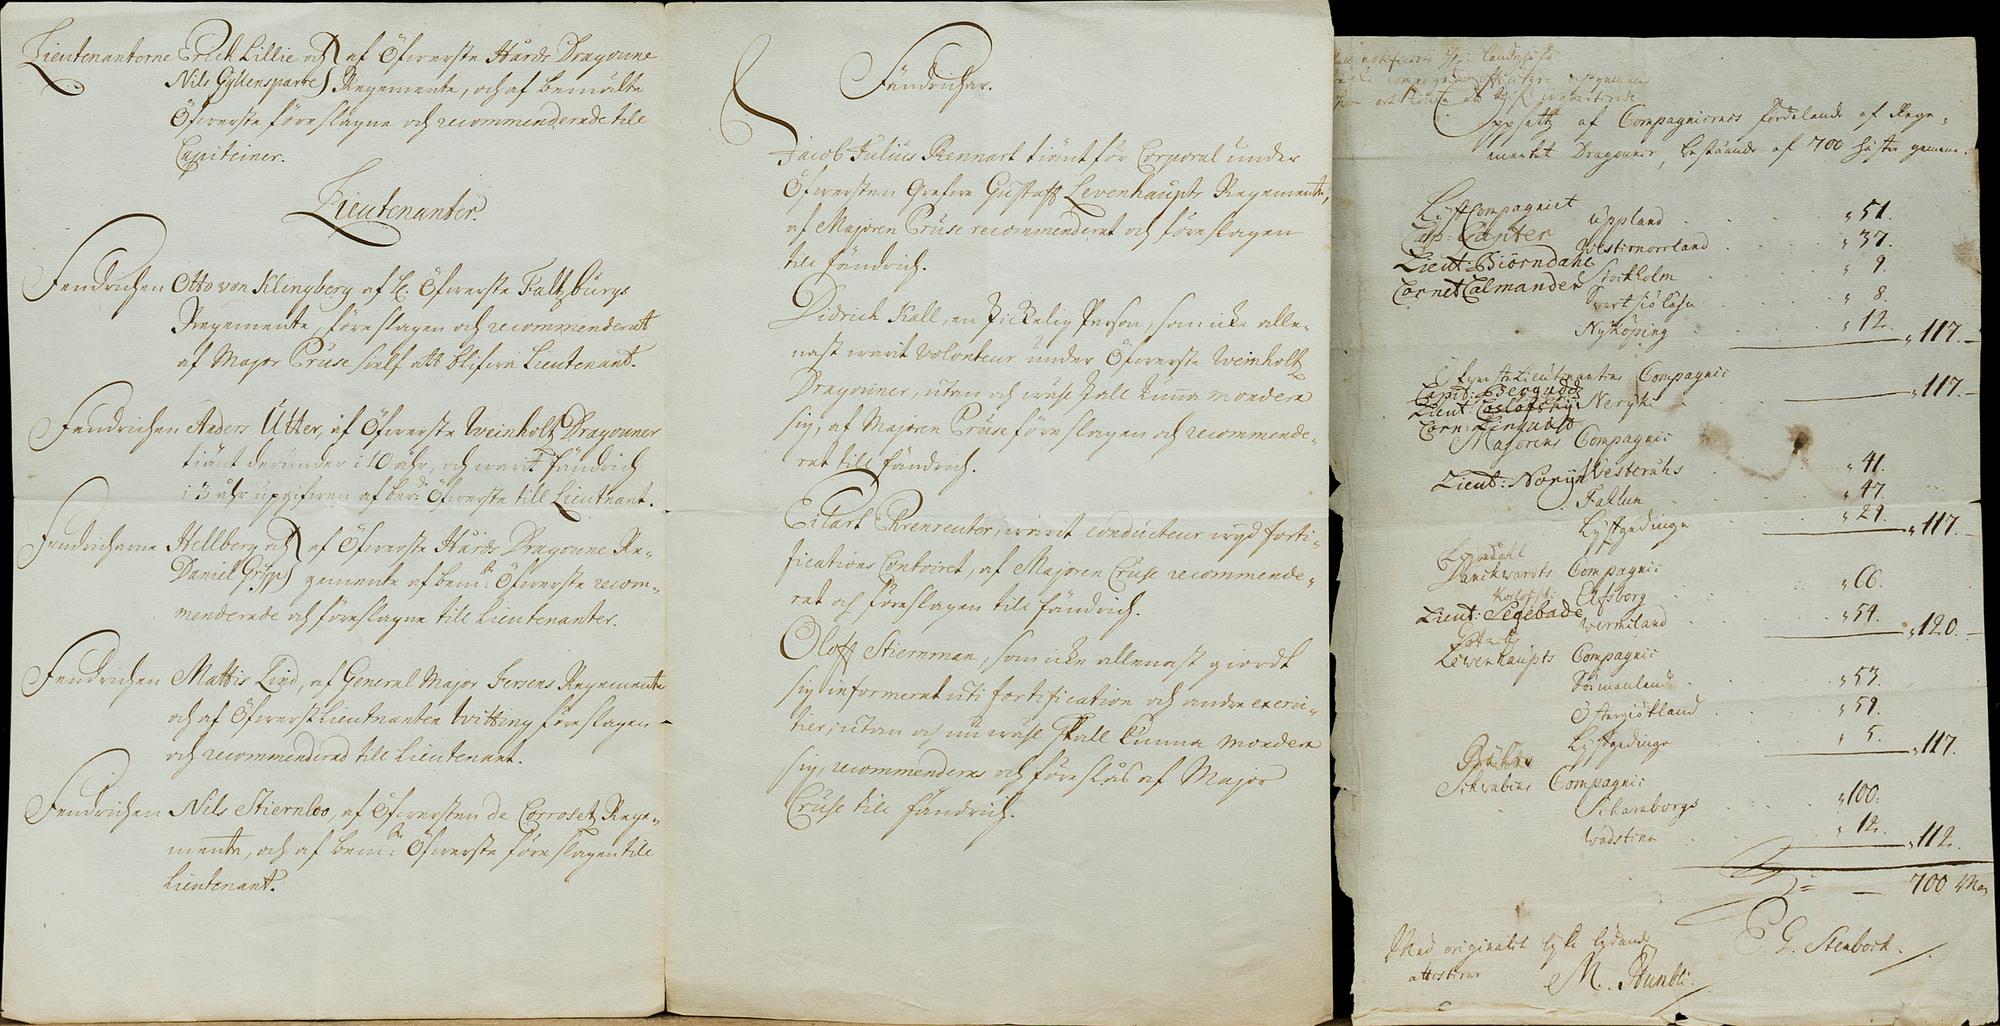 Lieutenanterne Erich Lillie och af Öfwerste Hårds Dragoune
Nils Gyllensparre Regemente, och af bemälte
Öfwerste föreslagne och recommenderade till
Capiteiner.
Lieutenanter.
Fendrichen Otto von Klingberg af H: Öfwerste Faltzburgs
Regemente, föreslagen och recommenderat
af Major Cruse sielf att blifwa Lieutenant.
Fendrichen Anders Ütter, af Öfwerste Weinholtz Dragouner
tiänt derunder i 10 åhr, och warit fändrich
i 3 åhr upgifwen af berd: Öfwerste till Lieutnant.
Fendricharne Hellberg och af Öfwerste Hårds Dragoune Re-
Daniel Gripp gemente af bemte: Öfwerste recom-
menderade och föreslagne till Lieutenanter.
Fendrichen Mattis Lind, af General Major Fersens Regemente
och af Öfwerst Lieutnanten Witting föreslagen
och recommenderad till Lieutenant.
Fendrichen Nils Stiernloo, af Öfwersten de Corroset Rege-
mente, och af bemte: Öfwerste föreslagen till
Lieutenant.
Fändrichar.
Jacob Julius Rennart tiänt för Corporal under
Öfwersten Grefwe Gustaff Levenhaupts Regemente,
af Majoren Cruse recommenderat och föreslagen
till fändrich.
Didrich Kall, en skickelig Person, som icke alle-
nast warit Volonteur under Öfwerste Weinholtz
Dragouner, utan och wähl skall kunna mondera
sig, af Majoren Cruse föreslagen och recommende-
rat till fändrich.
Erenreuter, warit conducteur wyd forti-
fications Contoiret, af Majoren Cruse recommende-
rat och föreslagen till fändrich.
Oloff Stiernman, som icke allenast giordt
sig informerat uti fortification och andra exerci-
tier, utan och nu wähl skall kunna mondera
sig, recommenderas och föreslås af Major
Cruse till fändrich.
Uppsatz af Compagniernes fördelande af Rege-
mentet Dragouner, bestående af 700 hästar gemene.
LyffCompagniet Uppland 51.
Cap: Canter Westernorrland 37.
Lieut: Biörndahl Stockholm 9.
Cornet Calmander Swartsiölähn 8.
Nykoping 12. 117.
Öfwerste Lieutenantens Compagnie
Capit: 117.
Lieut: Coslofsky Neryke
Corn: Linquist
Majorens Compagnie
Lieut: Noryn Westeråhs 41.
Fahlun 47.
Lyffgedinge 29. 117.
Danckwardts Compagnie
Elfsborg 66.
Lieut: Segebade Wermeland 54. 120.
Lewenhaupts Compagnie
Sörmanland 53.
Östergiötland 59.
Lyffgedinge 5. 117.
Schwabens Compagnie
Scharaborgs 100.
Wadstena 12. 112.
700 Man
C. G. Stenbock.
Med originalet lyka lydande
attesterar M.